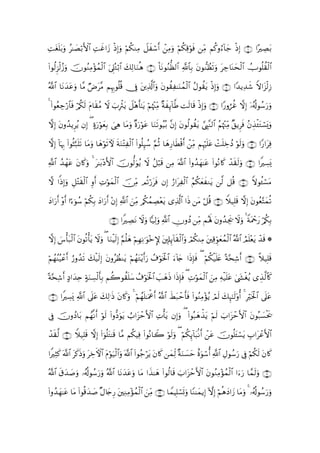 بَصِيرًا ۝ إِذۡ جَآءُوكُم مِّن فَوۡقِكُمۡ وَمِنۡ أَسۡفَلَ مِنكُمۡ وَإِذۡ زَاغَتِ ٱلۡأَبۡصَٰرُ وَبَلَغَتِ
ٱلۡقُلُوبُ ٱلۡحَنَاجِرَ وَتَظُنُّونَ بِٱللَّهِ ٱلظُّنُونَا۠ ۝ هُنَالِكَ ٱبۡتُلِيَ ٱلۡمُؤۡمِنُونَ وَزُلۡزِلُواْ
زِلۡزَالٗا شَدِيدٗا ۝ وَإِذۡ يَقُولُ ٱلۡمُنَٰفِقُونَ وَٱلَّذِينَ فِي قُلُوبِهِم مَّرَضٞ مَّا وَعَدَنَا ٱللَّهُ
وَرَسُولُهُۥٓ إِلَّا غُرُورٗا ۝ وَإِذۡ قَالَت طَّآئِفَةٞ مِّنۡهُمۡ يَٰٓأَهۡلَ يَثۡرِبَ لَا مُقَامَ لَكُمۡ فَٱرۡجِعُواْۚ
وَيَسۡتَـٔۡذِنُ فَرِيقٞ مِّنۡهُمُ ٱلنَّبِيَّ يَقُولُونَ إِنَّ بُيُوتَنَا عَوۡرَةٞ وَمَا هِيَ بِعَوۡرَةٍۖ إِن يُرِيدُونَ إِلَّا
فِرَارٗا ۝ وَلَوۡ دُخِلَتۡ عَلَيۡهِم مِّنۡ أَقۡطَارِهَا ثُمَّ سُئِلُواْ ٱلۡفِتۡنَةَ لَأٓتَوۡهَا وَمَا تَلَبَّثُواْ بِهَآ إِلَّا
يَسِيرٗا ۝ وَلَقَدۡ كَانُواْ عَٰهَدُواْ ٱللَّهَ مِن قَبۡلُ لَا يُوَلُّونَ ٱلۡأَدۡبَٰرَۚ وَكَانَ عَهۡدُ ٱللَّهِ
مَسۡـُٔولٗا ۝ قُل لَّن يَنفَعَكُمُ ٱلۡفِرَارُ إِن فَرَرۡتُم مِّنَ ٱلۡمَوۡتِ أَوِ ٱلۡقَتۡلِ وَإِذٗا لَّا
تُمَتَّعُونَ إِلَّا قَلِيلٗا ۝ قُلۡ مَن ذَا ٱلَّذِي يَعۡصِمُكُم مِّنَ ٱللَّهِ إِنۡ أَرَادَ بِكُمۡ سُوٓءًا أَوۡ أَرَادَ
بِكُمۡ رَحۡمَةٗۚ وَلَا يَجِدُونَ لَهُم مِّن دُونِ ٱللَّهِ وَلِيّٗا وَلَا نَصِيرٗا ۝
۞ قَدۡ يَعۡلَمُ ٱللَّهُ ٱلۡمُعَوِّقِينَ مِنكُمۡ وَٱلۡقَآئِلِينَ لِإِخۡوَٰنِهِمۡ هَلُمَّ إِلَيۡنَاۖ وَلَا يَأۡتُونَ ٱلۡبَأۡسَ إِلَّا
قَلِيلًا ۝ أَشِحَّةً عَلَيۡكُمۡۖ فَإِذَا جَآءَ ٱلۡخَوۡفُ رَأَيۡتَهُمۡ يَنظُرُونَ إِلَيۡكَ تَدُورُ أَعۡيُنُهُمۡ
كَٱلَّذِي يُغۡشَىٰ عَلَيۡهِ مِنَ ٱلۡمَوۡتِۖ فَإِذَا ذَهَبَ ٱلۡخَوۡفُ سَلَقُوكُم بِأَلۡسِنَةٍ حِدَادٍ أَشِحَّةً
عَلَى ٱلۡخَيۡرِۚ أُوْلَٰٓئِكَ لَمۡ يُؤۡمِنُواْ فَأَحۡبَطَ ٱللَّهُ أَعۡمَٰلَهُمۡۚ وَكَانَ ذَٰلِكَ عَلَى ٱللَّهِ يَسِيرٗا ۝
يَحۡسَبُونَ ٱلۡأَحۡزَابَ لَمۡ يَذۡهَبُواْۖ وَإِن يَأۡتِ ٱلۡأَحۡزَابُ يَوَدُّواْ لَوۡ أَنَّهُم بَادُونَ فِي
ٱلۡأَعۡرَابِ يَسۡـَٔلُونَ عَنۡ أَنۢبَآئِكُمۡۖ وَلَوۡ كَانُواْ فِيكُم مَّا قَٰتَلُوٓاْ إِلَّا قَلِيلٗا ۝ لَّقَدۡ
كَانَ لَكُمۡ فِي رَسُولِ ٱللَّهِ أُسۡوَةٌ حَسَنَةٞ لِّمَن كَانَ يَرۡجُواْ ٱللَّهَ وَٱلۡيَوۡمَ ٱلۡأٓخِرَ وَذَكَرَ ٱللَّهَ كَثِيرٗا
۝ وَلَمَّا رَءَا ٱلۡمُؤۡمِنُونَ ٱلۡأَحۡزَابَ قَالُواْ هَٰذَا مَا وَعَدَنَا ٱللَّهُ وَرَسُولُهُۥ وَصَدَقَ ٱللَّهُ
وَرَسُولُهُۥۚ وَمَا زَادَهُمۡ إِلَّآ إِيمَٰنٗا وَتَسۡلِيمٗا ۝ مِّنَ ٱلۡمُؤۡمِنِينَ رِجَالٞ صَدَقُواْ مَا عَٰهَدُواْ